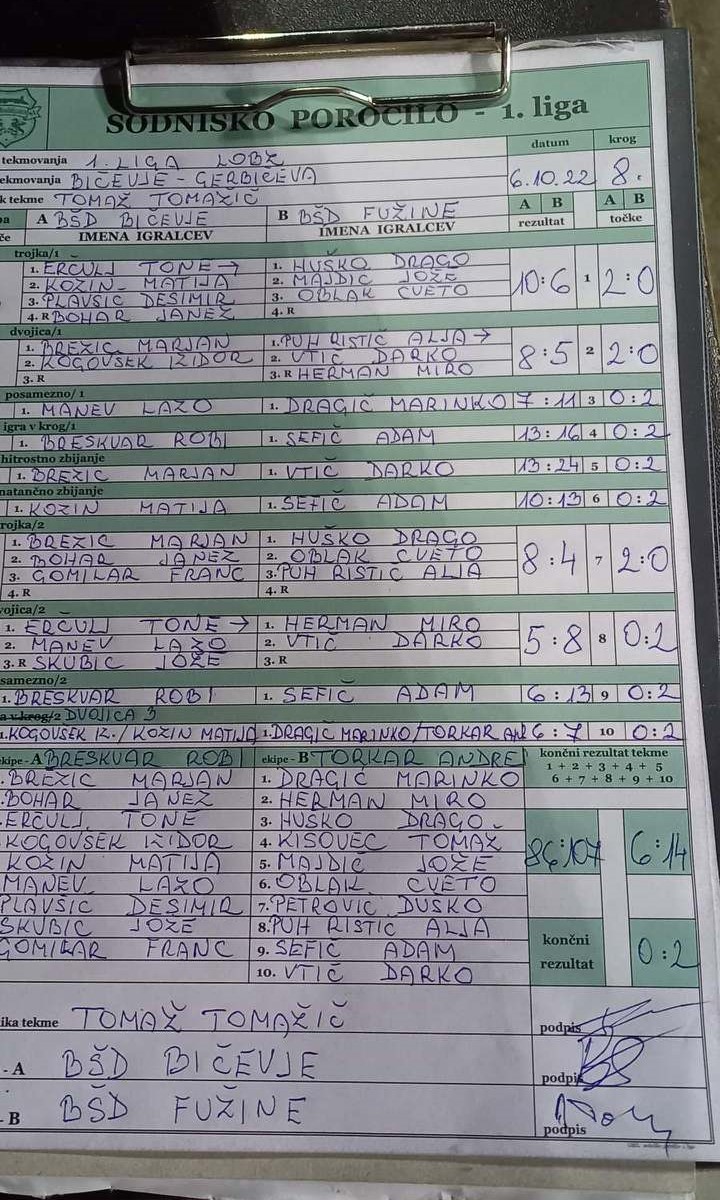 SODNISKO POROČILO - 1. liga
datum krog
tekmovanja 1. LIGA LOBZ
BIČEVJE - GERBIČEVA 6.10.22 8.
k tekme TOMAZ TOMAŽIČ A B A B
A BŠD BIČEVJE B BŠD FUŽINE rezultat točke
IMENA IGRALCEV IMENA IGRALCEV
trojka/1
1. ERCULJ TONE → 1. HUŠKO DRAGO
2. KOZIN MATIJA 2. MAJDIČ JOŽE 10:6 1 2:0
3. PLAVSIC DESIMIR 3. OBLAK CVETO
4. R BOHAR JANEZ 4. R
dvojica/1
1. BREZIC MARJAN 1. PUH RISTIČ ALJA →
2. KOGOVSEK IZIDOR 2. VTIČ DARKO 8:5 2 2:0
3. R 3. R HERMAN MIRO
posamezno/1
1. MANEV LAZO 1. DRAGIČ MARINKO 7:11 3 0:2
igra v krog/1
1. BRESKVAR ROBI 1. SEFIČ ADAM 13:16 4 0:2
hitrostno zbijanje
1. BREZIC MARJAN 1. VTIČ DARKO 13:24 5 0:2
natančno zbijanje
1. KOZIN MATIJA 1. SEFIČ ADAM 10:13 6 0:2
rojka/2
1. BREZIC MARJAN 1. HUŠKO DRAGO
2. BOHAR JANEZ 2. OBLAK CVETO 8:4 7 2:0
3. GOMILAR FRANC 3. PUH RISTIČ ALJA
4. R 4. R
vojica/2
1. ERCULJ TONE → 1. HERMAN MIRO
2. MANEV LAZO 2. VTIČ DARKO 5:8 8 0:2
3. R SKUBIC JOŽE 3. R
samezno/2
1. BRESKVAR ROBI 1. SEFIČ ADAM 6:13 9 0:2
a v krog/2 DVOJICA 3
1. KOGOVSEK IZ./KOZIN MATIJA 1. DRAGIČ MARINKO/TORKAR AND 6:7 10 0:2
ekipe - A BRESKVAR ROBI ekipe - B TORKAR ANDREJ končni rezultat tekme
BREZIC MARJAN 1. DRAGIČ MARINKO 1 + 2 + 3 + 4 + 5
6 + 7 + 8 + 9 + 10
BOHAR JANEZ 2. HERMAN MIRO
ERCULJ TONE 3. HUSKO DRAGO
KOGOVSEK IZIDOR 4. KISOVEC TOMAZ 86:107 6:14
KOZIN MATIJA 5. MAJDIČ JOŽE
MANEV LAZO 6. OBLAK CVETO
PLAVŠIC DESIMIR 7. PETROVIC DUSKO
SKUBIC JOŽE 8. PUH RISTIČ ALJA
GOMILAR FRANC 9. SEFIČ ADAM končni rezultat 0:2
10. VTIČ DARKO
ika tekme TOMAŽ TOMAŽIČ podpis
- A BŠD BIČEVJE podpis
- B BŠD FUŽINE podpis